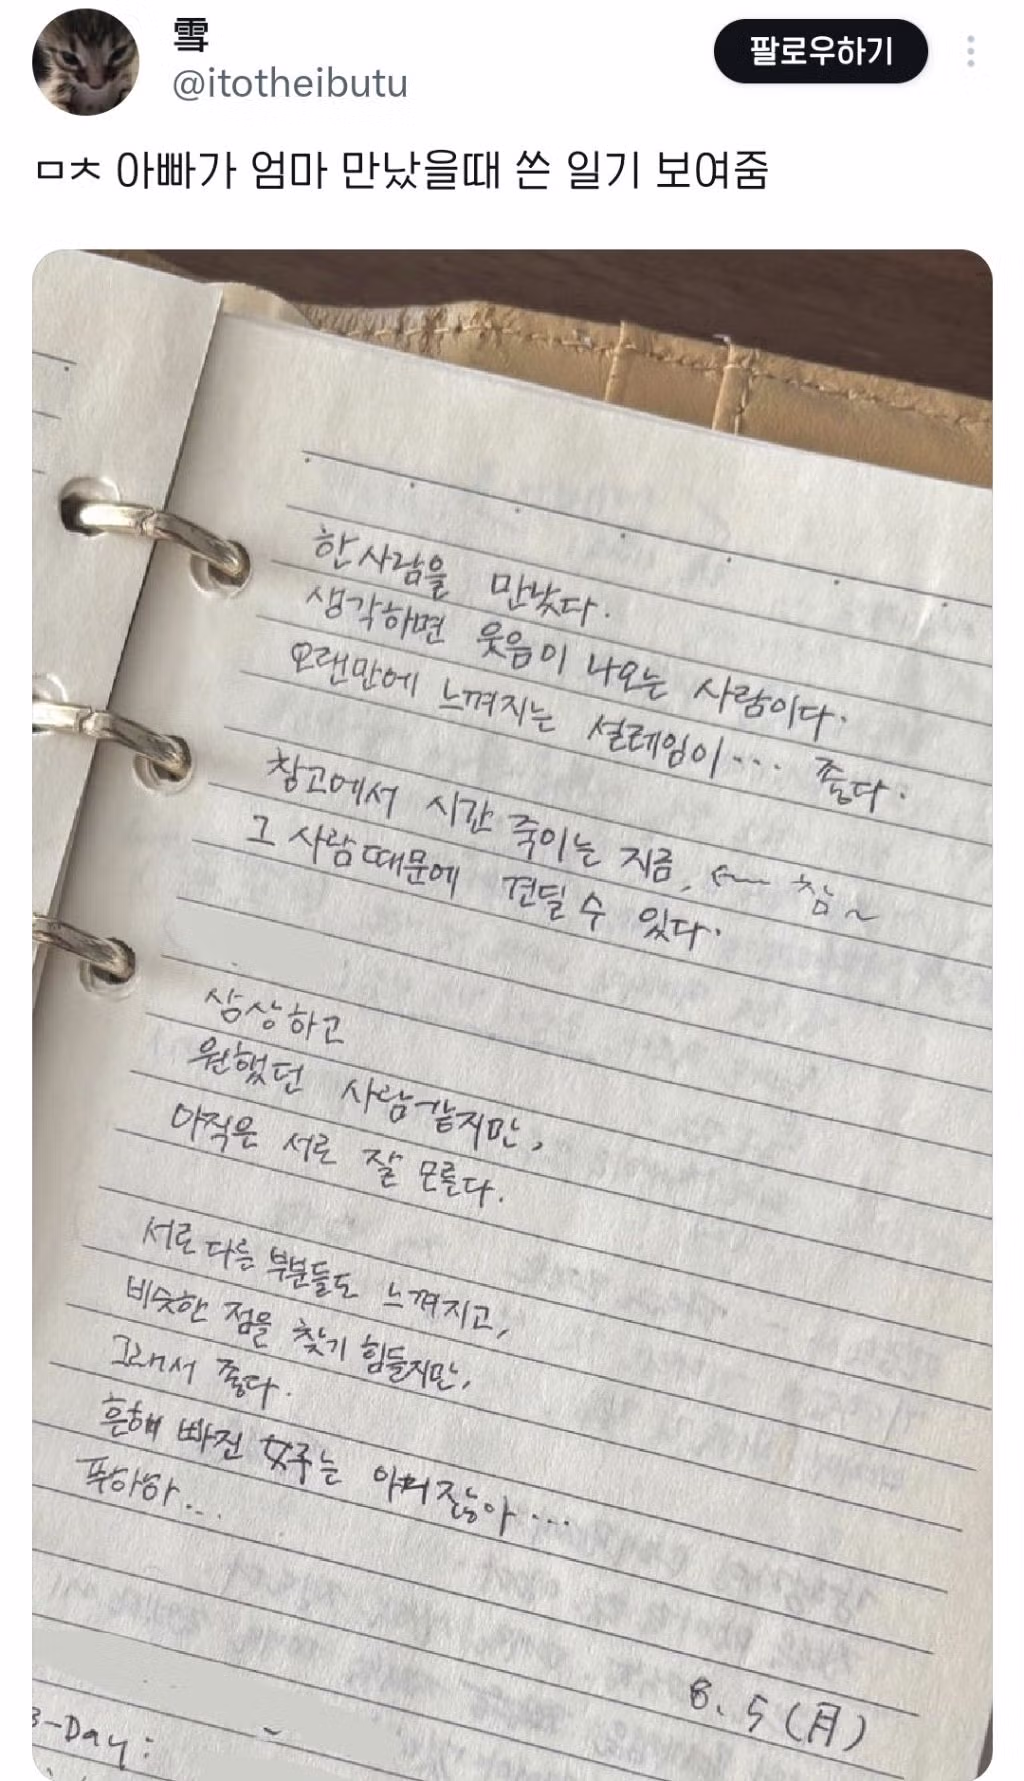 雪
@itotheibutu
팔로우하기
ㅁㅊ 아빠가 엄마 만났을때 쓴 일기 보여줌
한 사람을 만났다.
생각하면 웃음이 나오는 사람이다.
오랜만에 느껴지는 설레임이... 좋다.
창고에서 시간 죽이는 지금, ← 참~
그 사람 때문에 견딜 수 있다.
상상하고
원했던 사람 같지만,
아직은 서로 잘 모른다.
서로 다른 부분들도 느껴지고,
비슷한 점을 찾기 힘들지만,
그래서 좋다.
흔해 빠진 는 아니잖아...
푸하하...
8. 5 (月)
-Day: